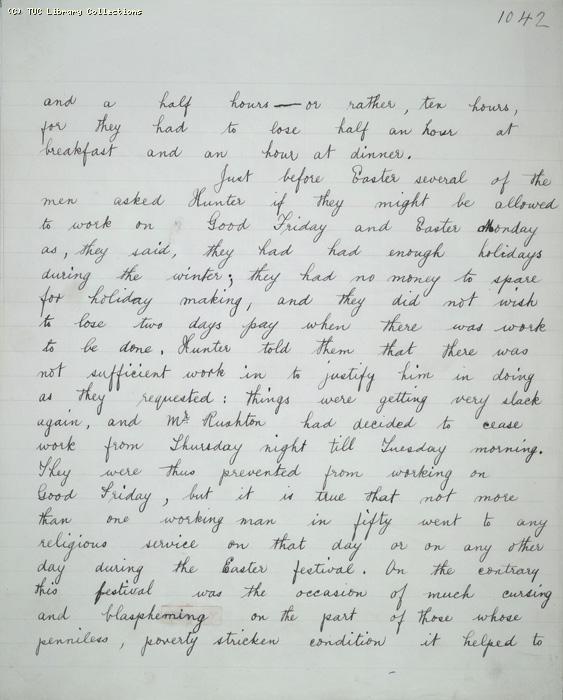 (C) TUC Library Collections
1042
and a half hours — or rather, ten hours,
for they had to lose half an hour at
breakfast and an hour at dinner.
Just before Easter several of the
men asked Hunter if they might be allowed
to work on Good Friday and Easter Monday
as, they said, they had had enough holidays
during the winter; they had no money to spare
for holiday making, and they did not wish
to lose two days pay when there was work
to be done. Hunter told them that there was
not sufficient work in to justify him in doing
as they requested: things were getting very slack
again, and Mr Rushton had decided to cease
work from Thursday night till Tuesday morning.
They were thus prevented from working on
Good Friday, but it is true that not more
than one working man in fifty went to any
religious service on that day or on any other
day during the Easter festival. On the contrary
this festival was the occasion of much cursing
and blaspheming on the part of those whose
penniless, poverty stricken condition it helped to